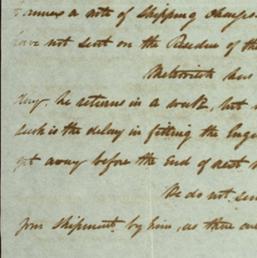 annex a note of Shipping Charges
have not sent on the Residue of the
has
day. he returns in a week, but
such is the delay in fitting the
get away before the End of next
We do not
your shipment by him, as there are